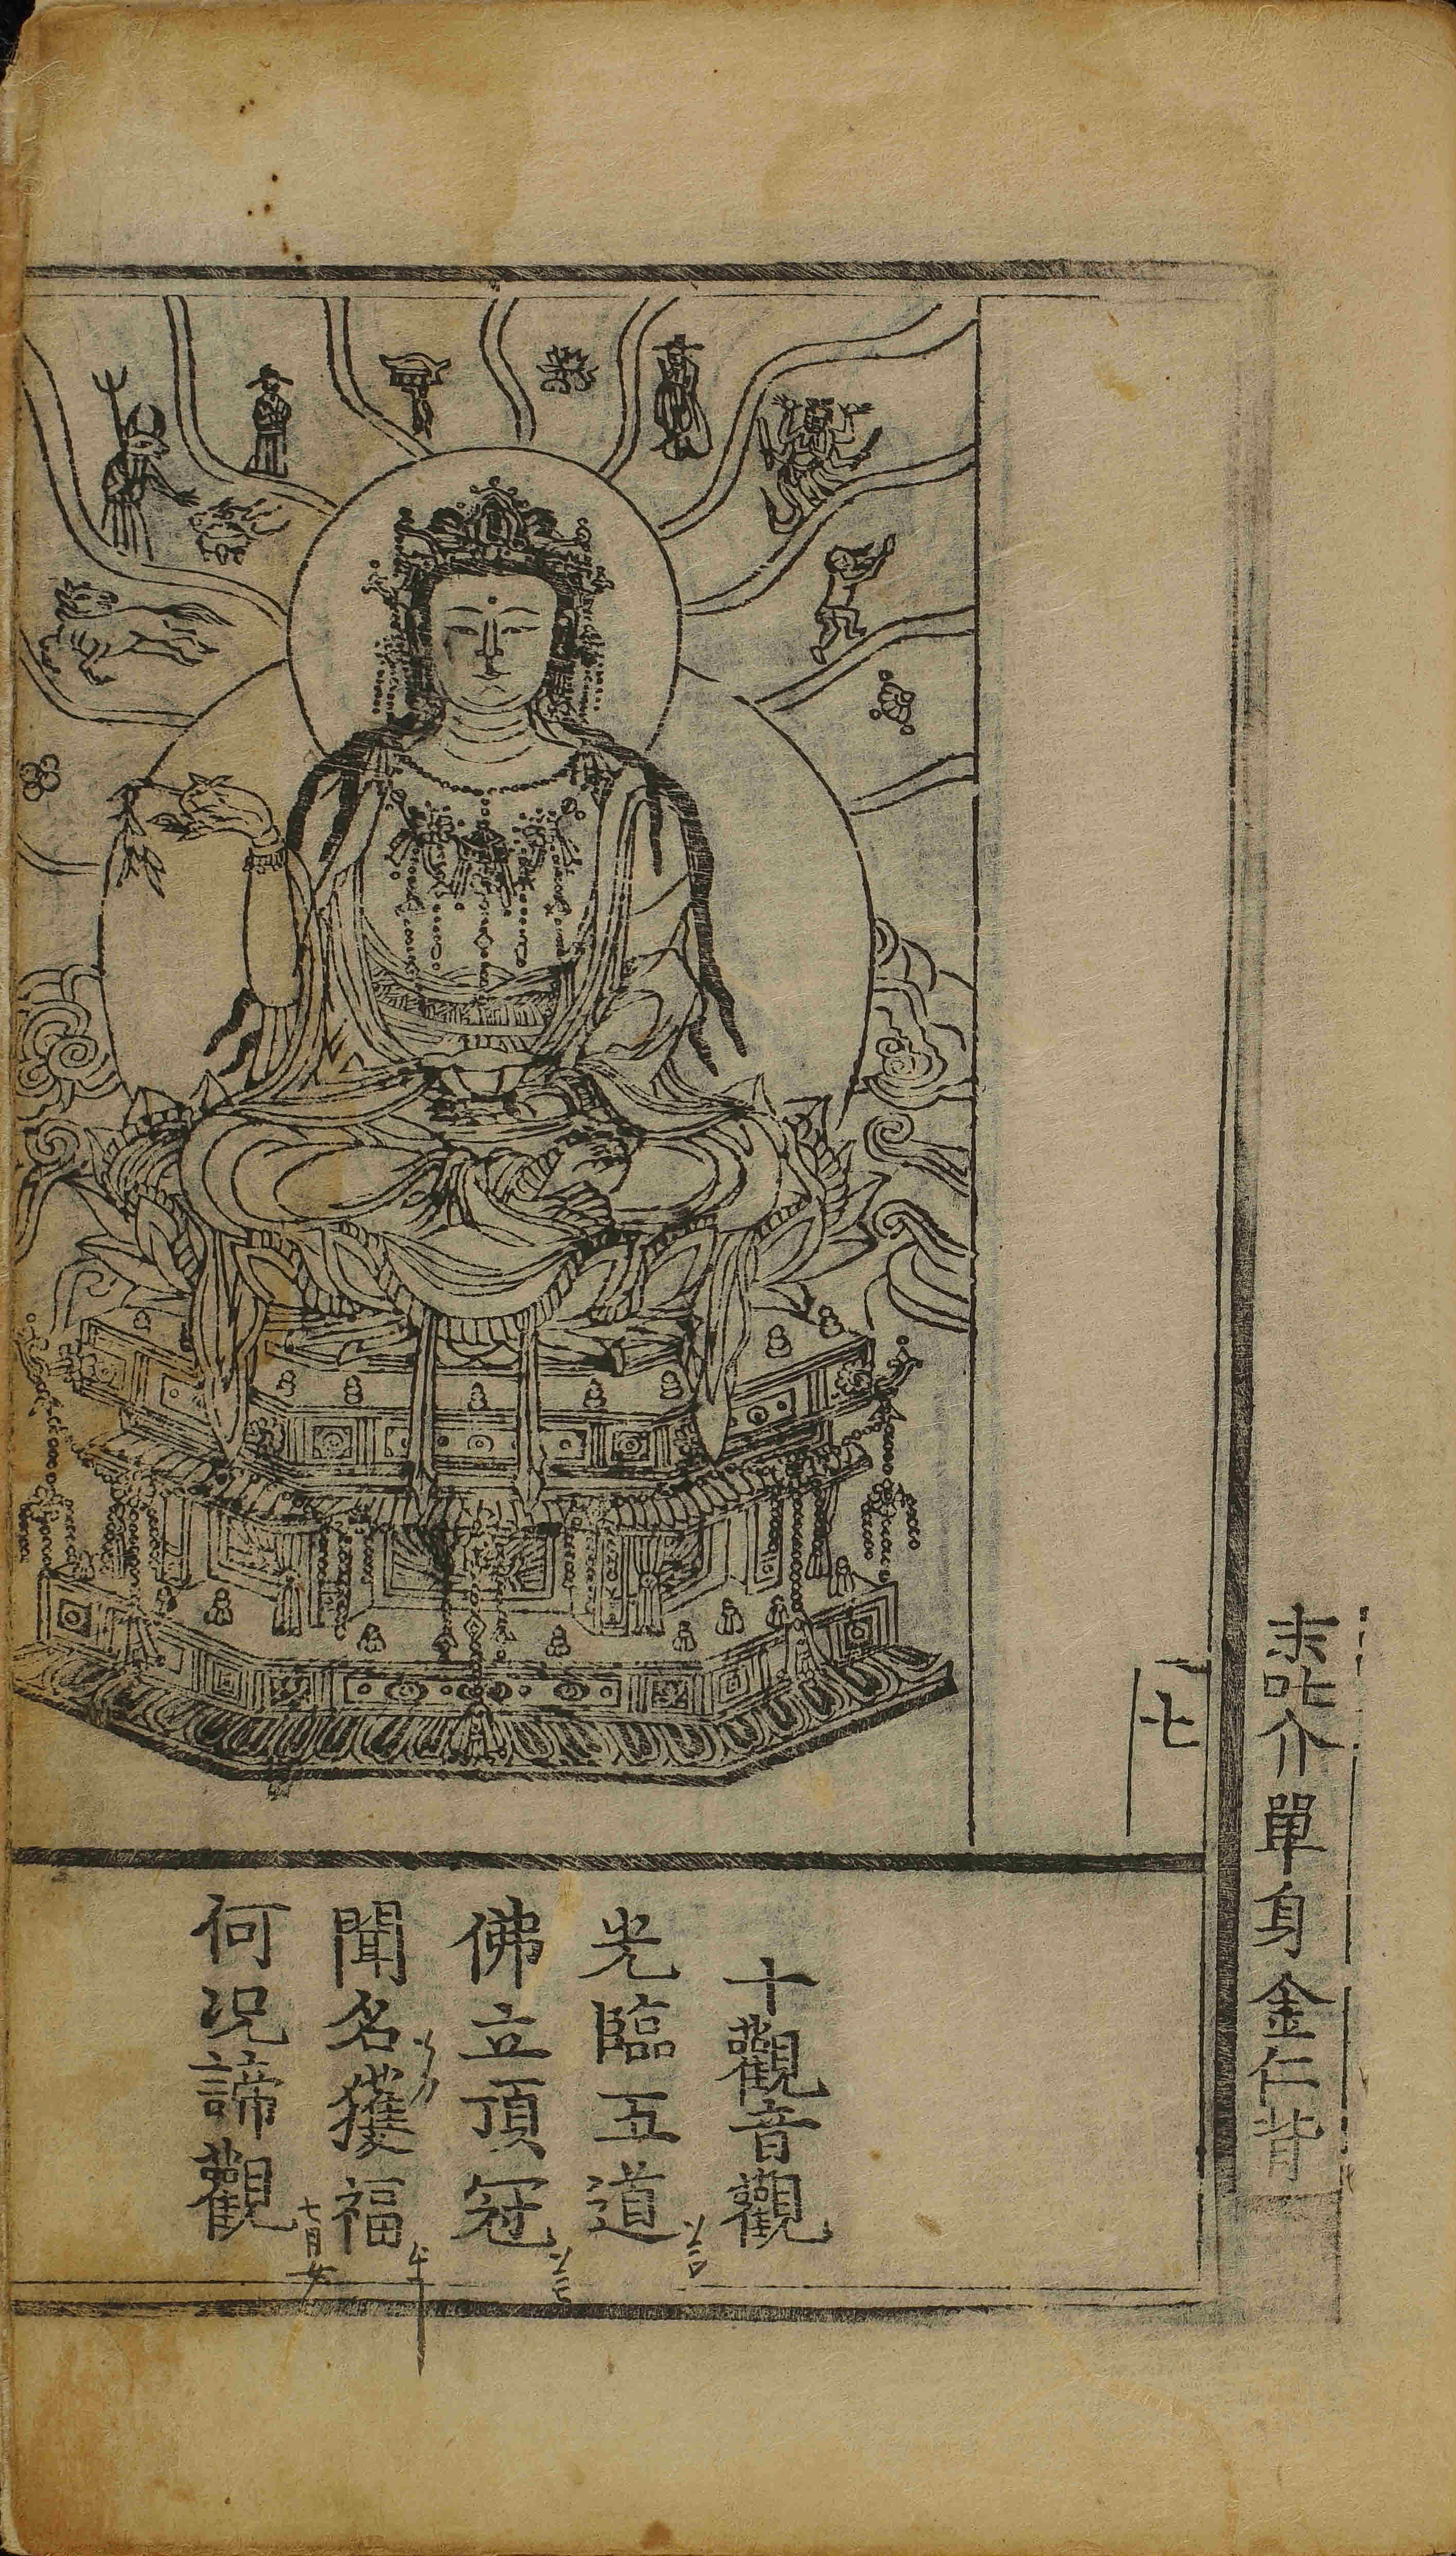 末叱介單身金仁背
七
十觀音觀
光臨五道
佛立頂冠
聞名獲福
何況諦觀
七月